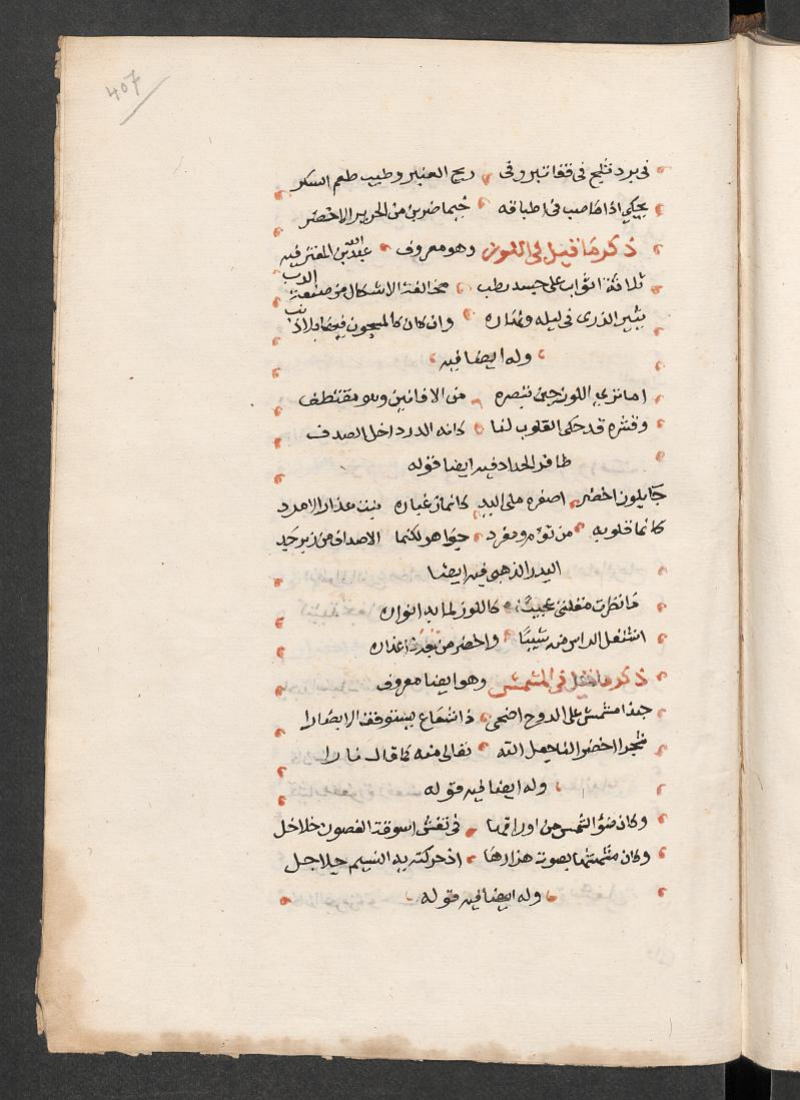 407
في برد ثلج في قفا تبر وفي ريح العنبر وطيب طعم السكر
يحكي اذا ما صب في اطباقه خيما ضربن من الحرير الاخضر
ذكر ما قيل في اللوز وهو معروف عبد الله بن المعتز فيه
ثلاثة اثواب على جسد رطب مخالفة الاشكال من صنعة الرب
في ليله ونهاره وان كان كالمسجون فيها بلا ذنب
وله ايضا فيه
اما تري اللوز حين تبصره من الافانين وهو مقتطف
وقشره قد حكى القلوب لنا كانه الدر داخل الصدف
ظافر الحداد فيه ايضا قوله
جا بلوز اخضر اصغره ملى اليد كانما زغباره نبت عذار الامرد
كانما قلوبه من توم ومفرد جواهر لكنما الاصداف من زبرجد
البدر الذهبي فيه ايضا
ما نظرت مقلتي عجيبا كاللوز لما بدا نواره
اشتعل الراس منه شيبا واخضر من بعد ذا عذاره
ذكر ما قيل في المشمش وهو ايضا معروف
حبذا مشمش على الدوح اضحى ذا شعاع يستوقف الابصارا
شجر اخضر لنا جعل الله تعالى منه كما قال نارا
وله ايضا فيه قوله
وكان ضوء الشمس من اوراقها في نقش اسوقة الغصون خلاخل
وكان مشمشها بصوت هزارها اذ حركته يد النسيم جلاجل
وله ايضا فيه قوله